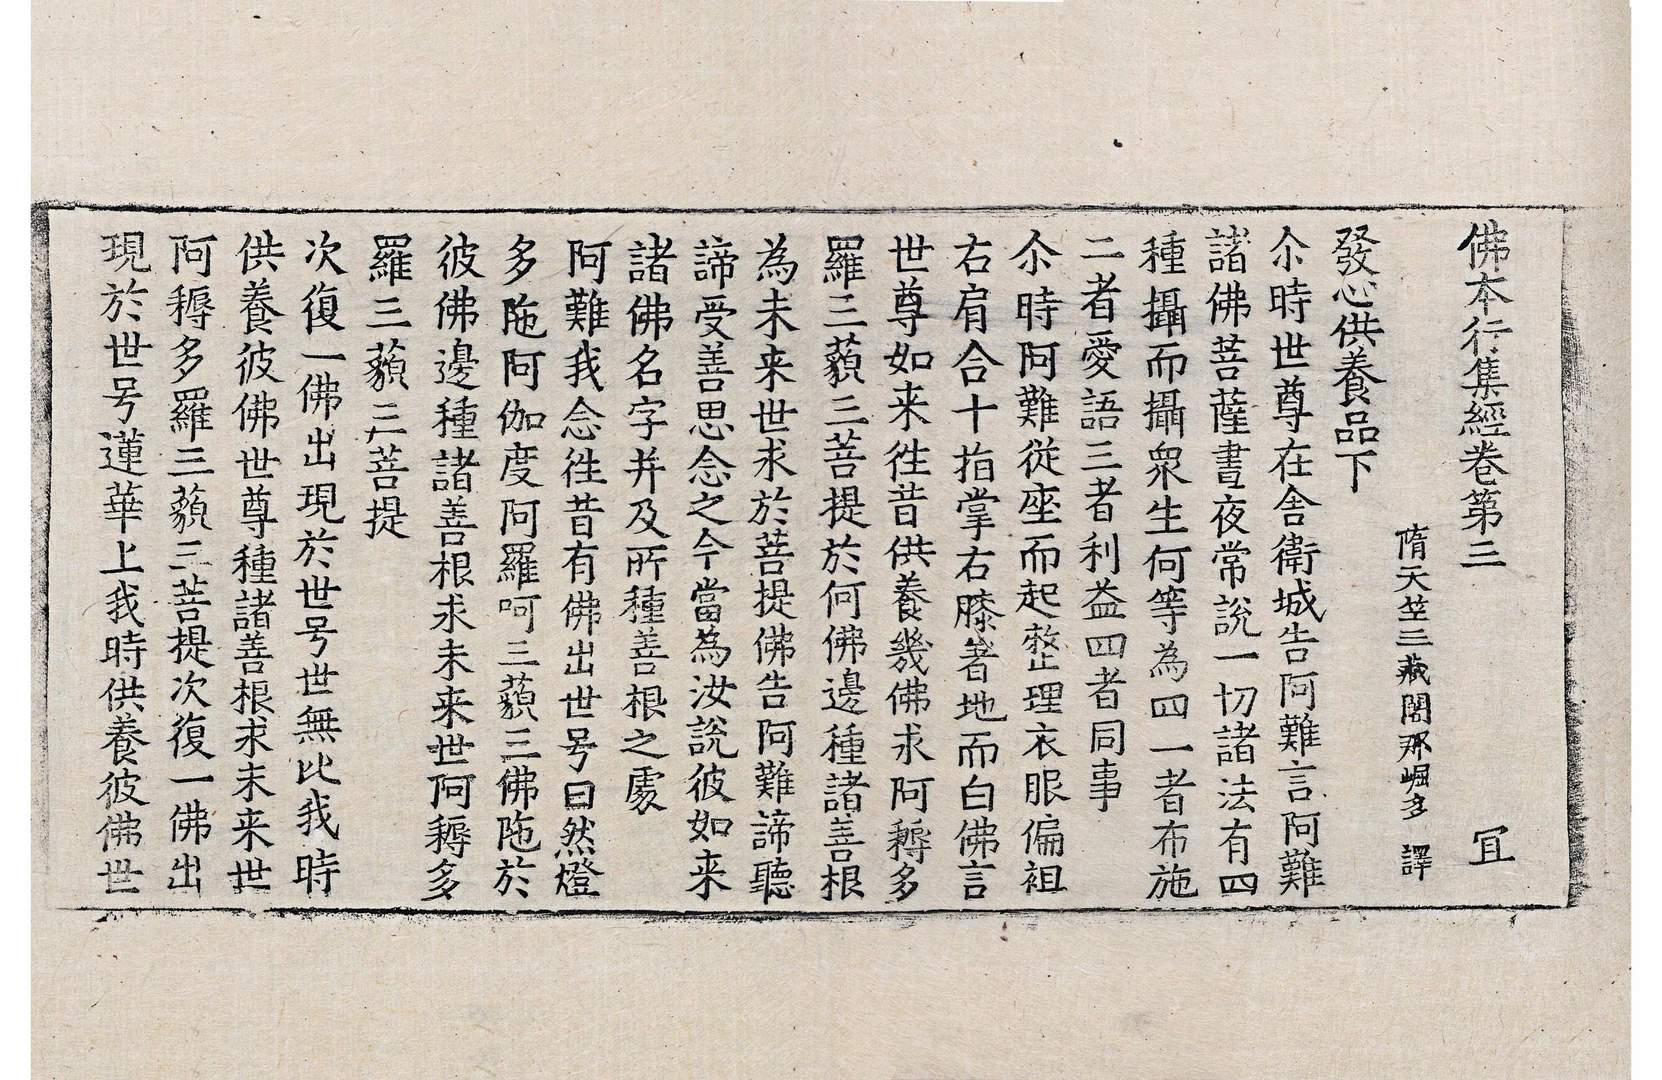 佛本行集經卷第三 冝
隋天竺三藏闍那崛多 譯
發心供養品下
尒時世尊在舍衛城告阿難言阿難
諸佛菩薩晝夜常說一切諸法有四
種攝而攝衆生何等為四一者布施
二者愛語三者利益四者同事
尒時阿難從座而起整理衣服偏袒
右肩合十指掌右膝著地而白佛言
世尊如来徃昔供養幾佛求阿耨多
羅三藐三菩提於何佛邊種諸善根
為未来世求於菩提佛告阿難諦聽
諦受善思念之今當為汝說彼如来
諸佛名字并及所種善根之處
阿難我念徃昔有佛出世号曰然燈
多陁阿伽度阿羅呵三藐三佛陁於
彼佛邊種諸善根求未来世阿耨多
羅三藐三菩提
次復一佛出現於世号世無比我時
供養彼佛世尊種諸善根求未来世
阿耨多羅三藐三菩提次復一佛出
現於世号蓮華上我時供養彼佛世